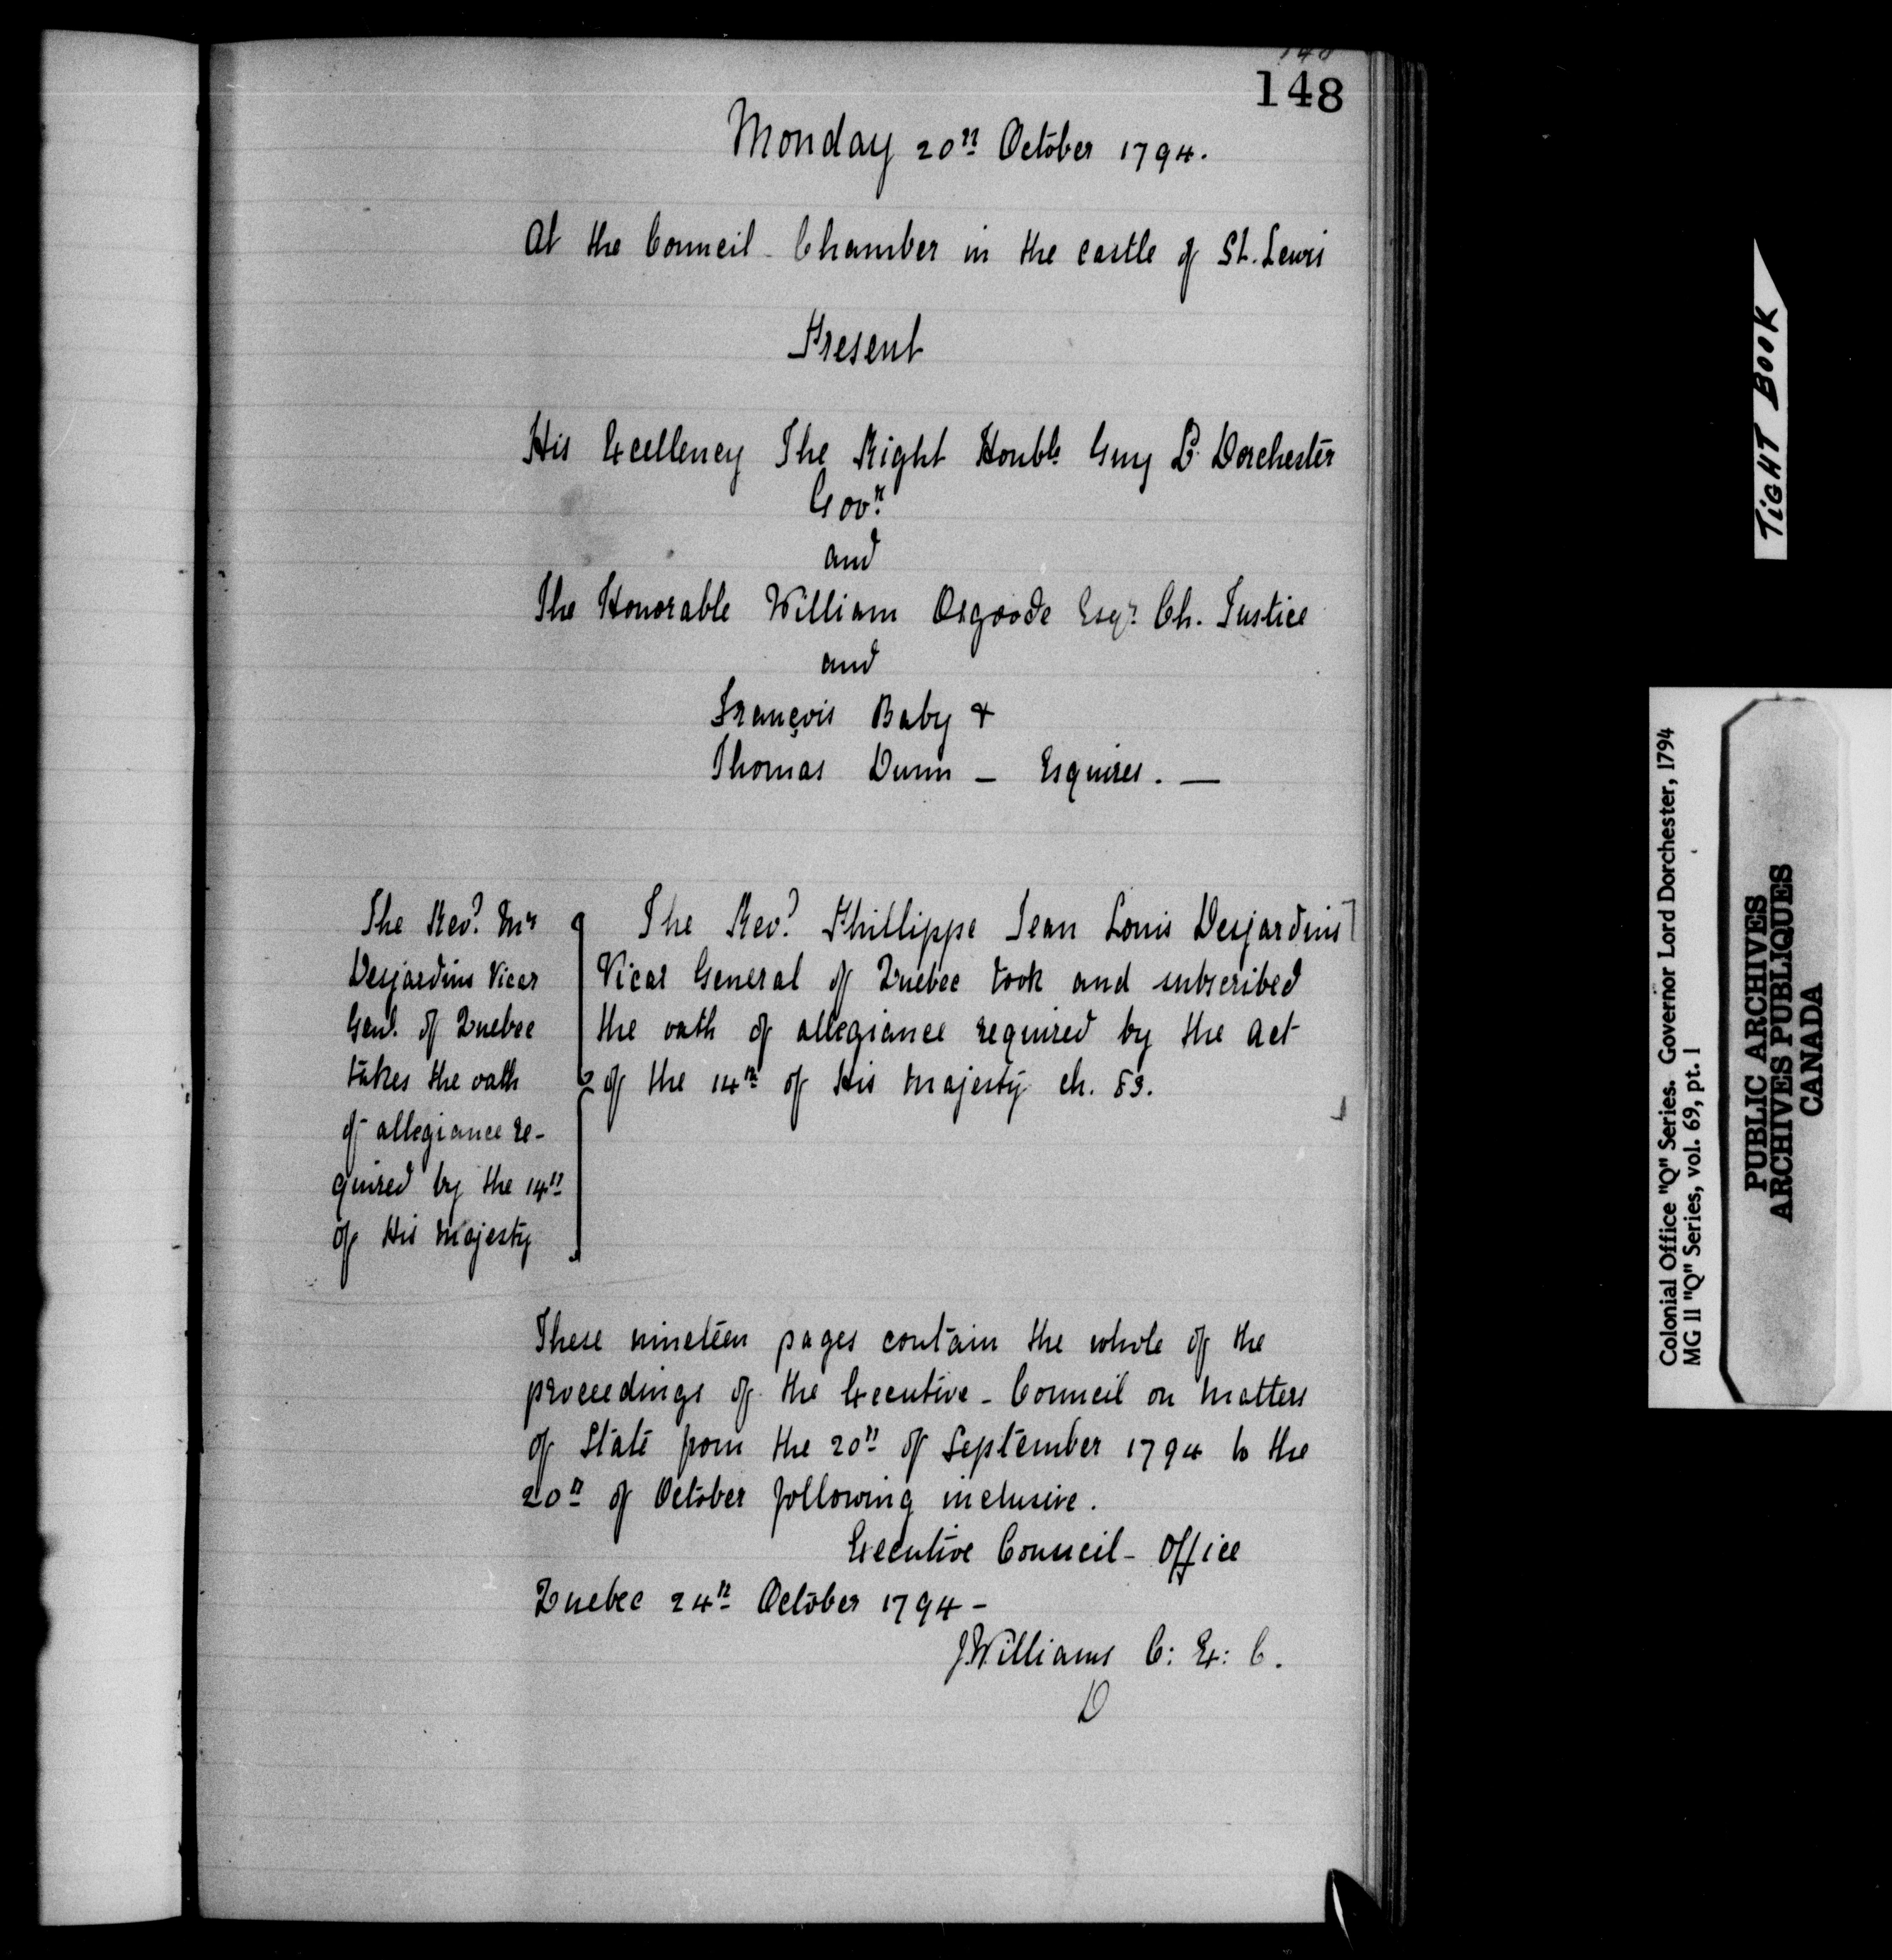 148
148
Monday 20th October 1794.
At the Council-Chamber in the castle of St. Lewis
Present
His Excellency The Right Honble Guy Ld. Dorchester
Govr
and
The Honorable William Osgoode Esqr. Ch. Justice
and
François Baby &
Thomas Dunn — Esquires. —
The Revd. Mr
Desjardins Vicar
Genl. of Quebec
takes the oath
of allegiance re-
quired by the 14th
of His Majesty
The Revd. Phillippe Jean Louis Desjardins
Vicar General of Quebec took and subscribed
the oath of allegiance required by the act
of the 14th of His Majesty ch. 83.
These nineteen pages contain the whole of the
proceedings of the Executive-Council on matters
of State from the 20th of September 1794 to the
20th of October following inclusive.
Executive Council-Office
Quebec 24th October 1794 -
J. Williams C: Ex: C.
D
TIGHT BOOK
Colonial Office "Q" Series. Governor Lord Dorchester, 1794
MG 11 "Q" Series, vol. 69, pt. 1
PUBLIC ARCHIVES
ARCHIVES PUBLIQUES
CANADA